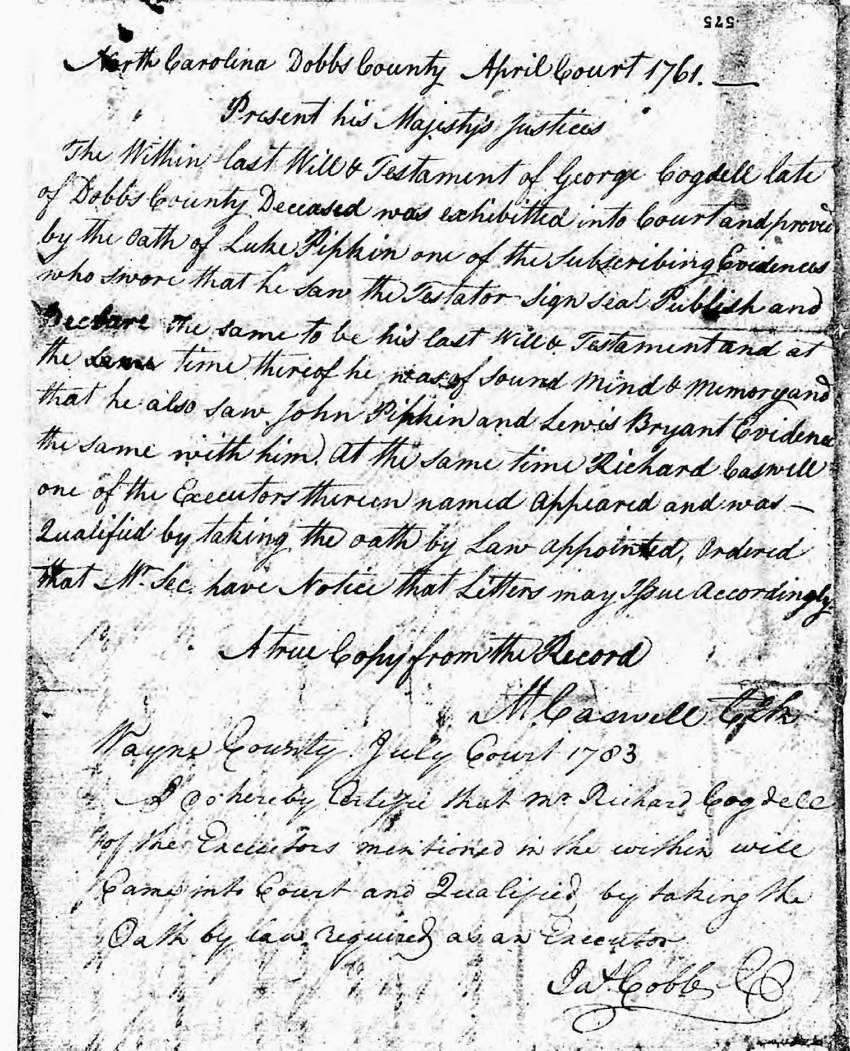 575
North Carolina Dobbs County April Court 1761.
Present his Majesty's Justices
The Within last Will & Testament of George Cogdell late
of Dobbs County Deceased was exhibitted into Court and proved
by the oath of Luke Pipkin one of the Subscribing Evidences
who swore that he saw the Testator sign seal Publish and
Declare the same to be his last Will & Testament and at
the same time thereof he was of Sound Mind & Memory and
that he also saw John Pipkin and Lewis Bryant Evidence
the same with him. At the same time Richard Caswell
one of the Executors therein named appeared and was
Qualified by taking the oath by Law appointed, Ordered
that Mr. Sec. have Notice that Letters may Issue Accordingly
A true Copy from the Record
M. Caswell Clk
Wayne County July Court 1783
I Do hereby Certifie that Mr Richard Cogdell
of the Executors mentioned in the within will
Came into Court and Qualified by taking the
Oath by law required as an Executor
Jas Cobb CC